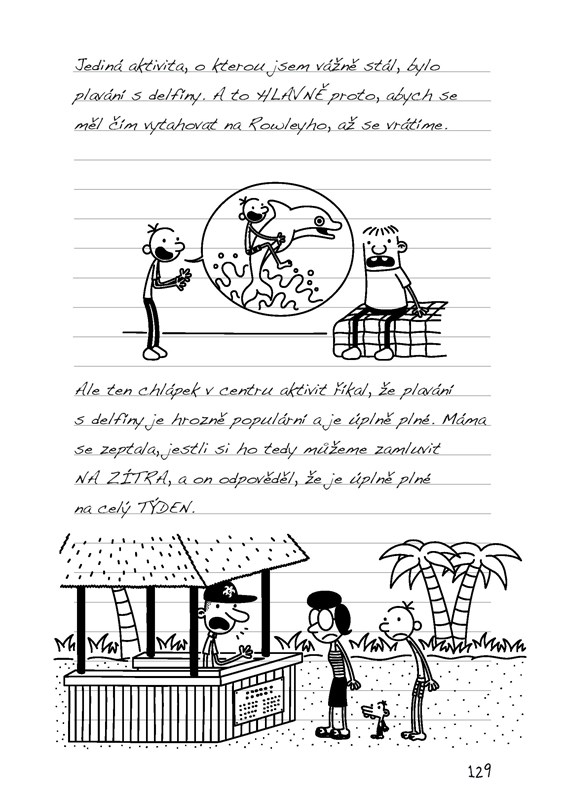 Jediná aktivita, o kterou jsem vážně stál, bylo
plavání s delfíny. A to HLAVNĚ proto, abych se
měl čím vytahovat na Rowleyho, až se vrátíme.
Ale ten chlápek v centru aktivit říkal, že plavání
s delfíny je hrozně populární a je úplně plné. Máma
se zeptala, jestli si ho tedy můžeme zamluvit
NA ZÍTRA, a on odpověděl, že je úplně plné
na celý TÝDEN.
129